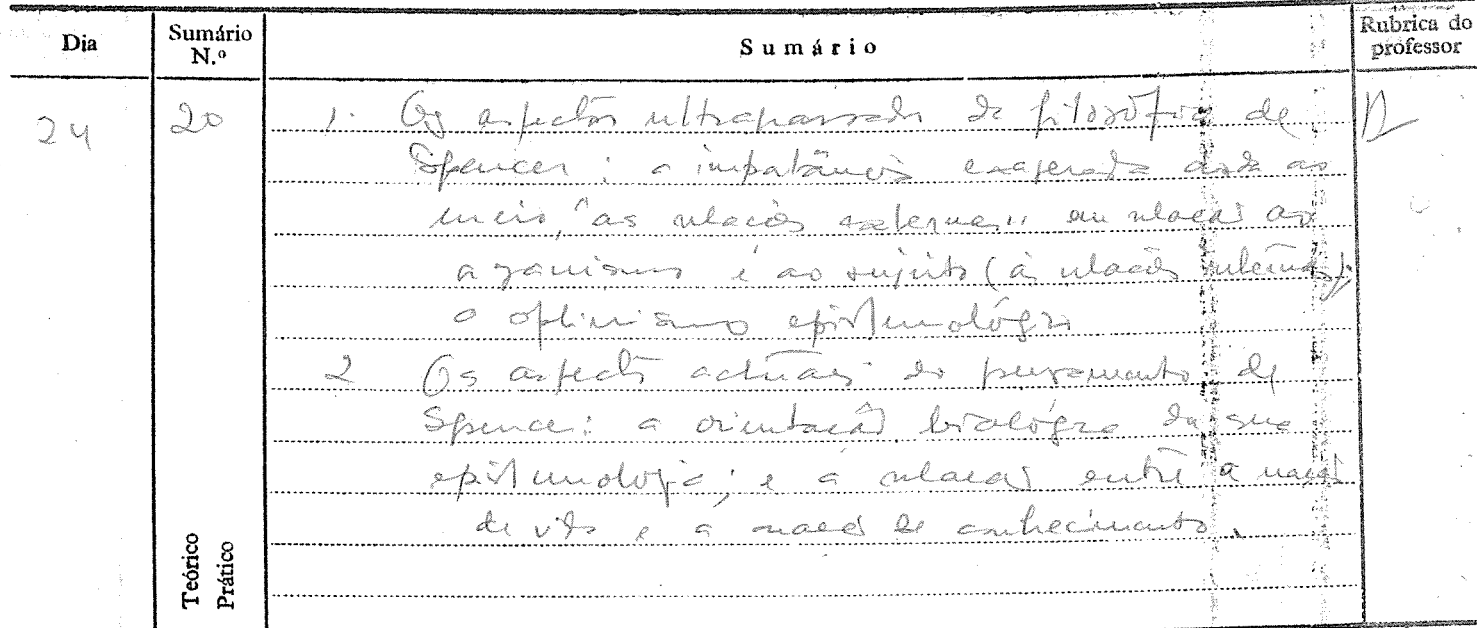 Dia Sumário N.º Sumário Rubrica do professor
24 20 1. Os aspectos ultrapassados da filosofia de
Spencer: a importância exagerada dada ao
meio, "as relações externas" em relação ao
organismo e ao sujeito (às relações internas);
o optimismo epistemológico
2 Os aspectos actuais do pensamento de
Spencer: a orientação biológica da sua
epistemologia; e a relação entre a noção
de vida e a noção de conhecimento.
Teórico
Prático